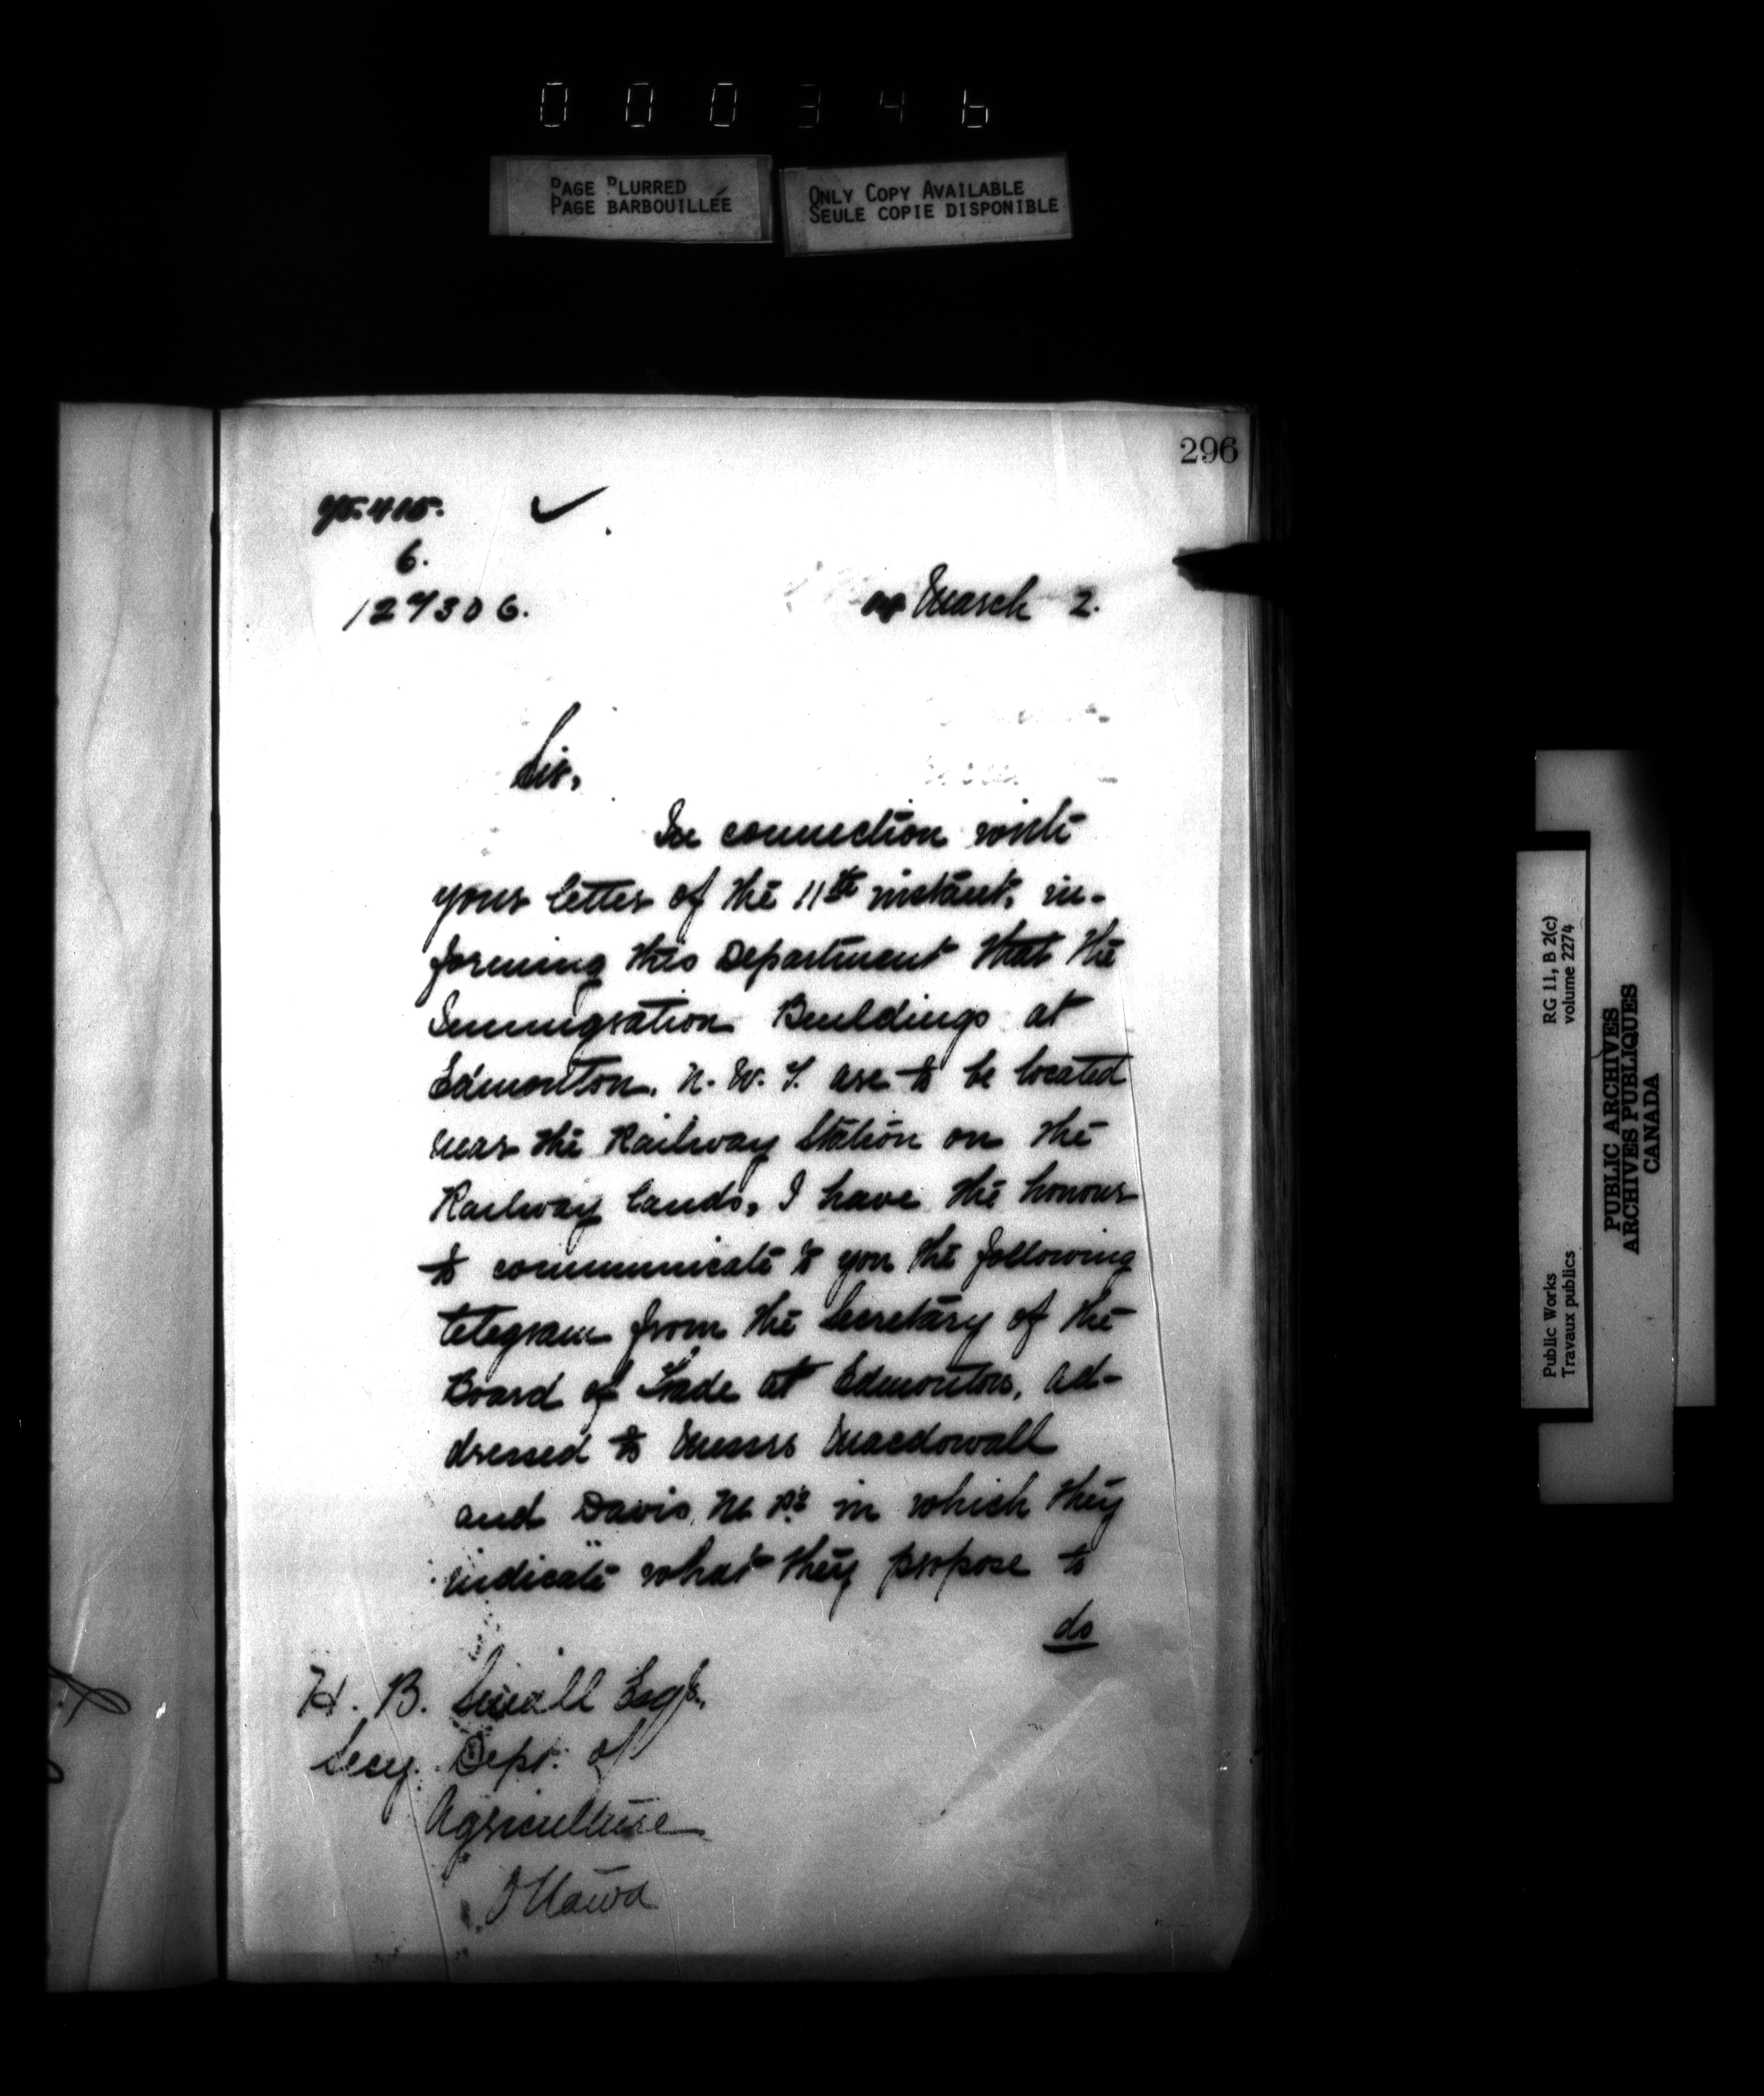 000346
PAGE BLURRED
PAGE BARBOUILLÉE
ONLY COPY AVAILABLE
SEULE COPIE DISPONIBLE
296
6.
127306.
March 2.
Sir,
In connection with
your letter of the 11th instant, in-
forming this Department that the
Immigration Buildings at
Edmonton, N. W. T. are to be located
near the Railway Station on the
Railway lands, I have the honour
to communicate to you the following
telegram from the Secretary of the
Board of Trade at Edmonton, ad-
dressed to Messrs Macdowall
and Davis, M.P.s in which they
indicate what they propose to
do
H. B. Small Esqr.
Secy. Dept. of
Agriculture
Ottawa
Public Works
Travaux publics
RG 11, B 2(c)
volume 2274
PUBLIC ARCHIVES
ARCHIVES PUBLIQUES
CANADA